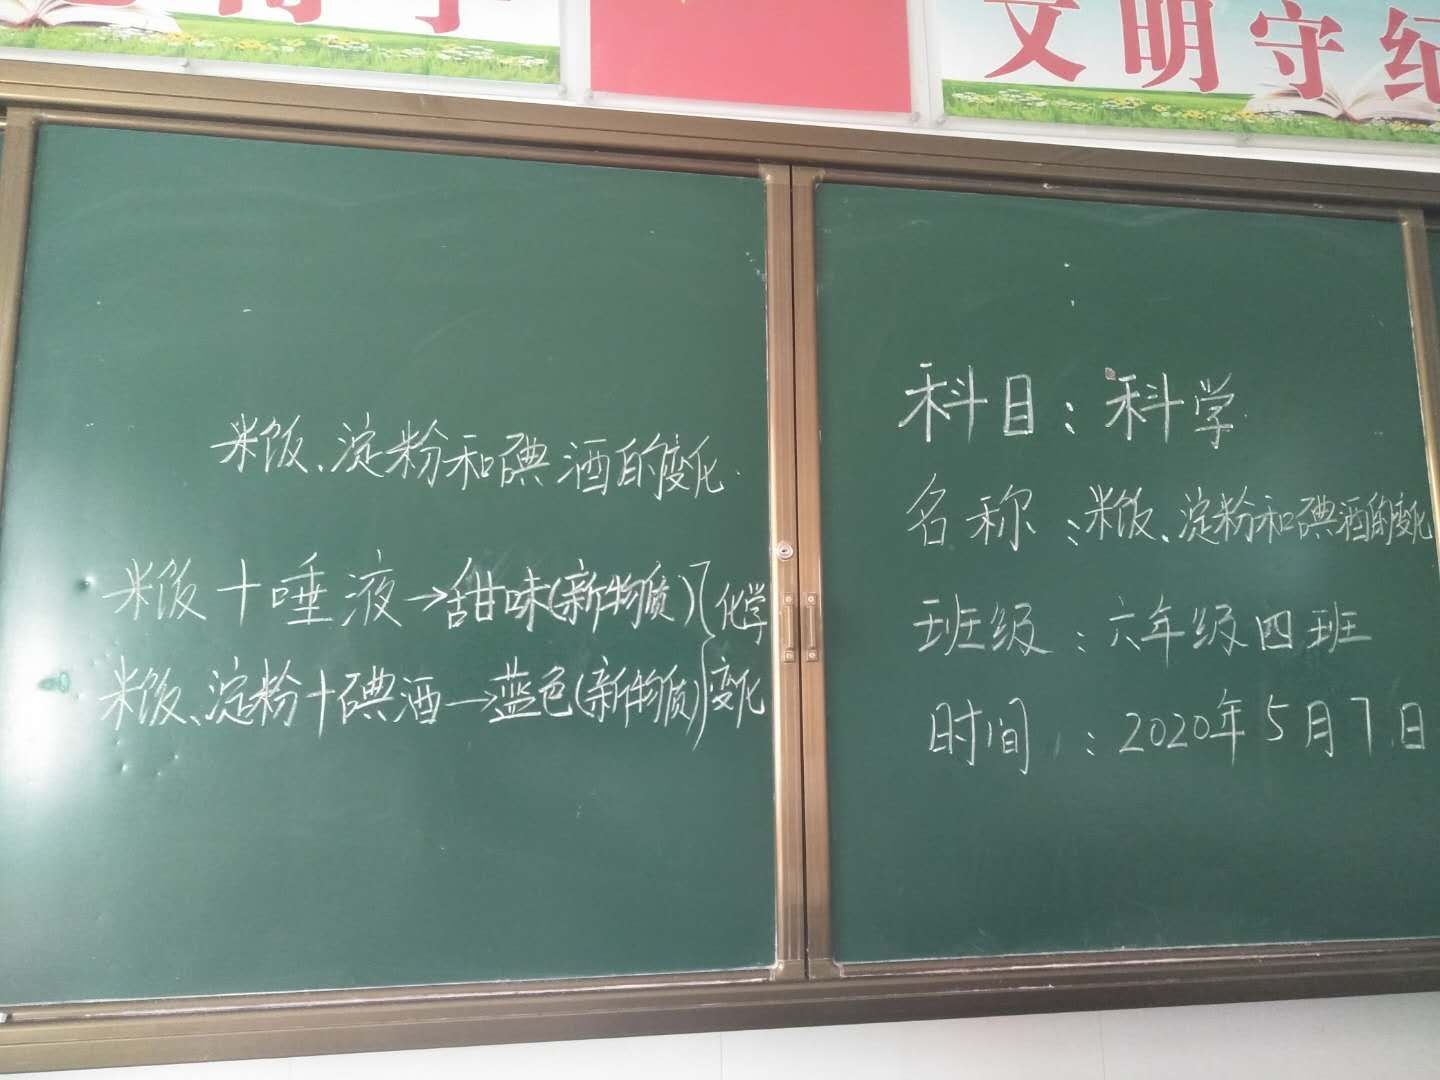 文明守纪
米饭、淀粉和碘酒的变化
米饭+唾液→甜味(新物质)
米饭、淀粉+碘酒→蓝色(新物质)
化学
变化
科目:科学
名称:米饭、淀粉和碘酒的变化
班级:六年级四班
时间:2020年5月7日